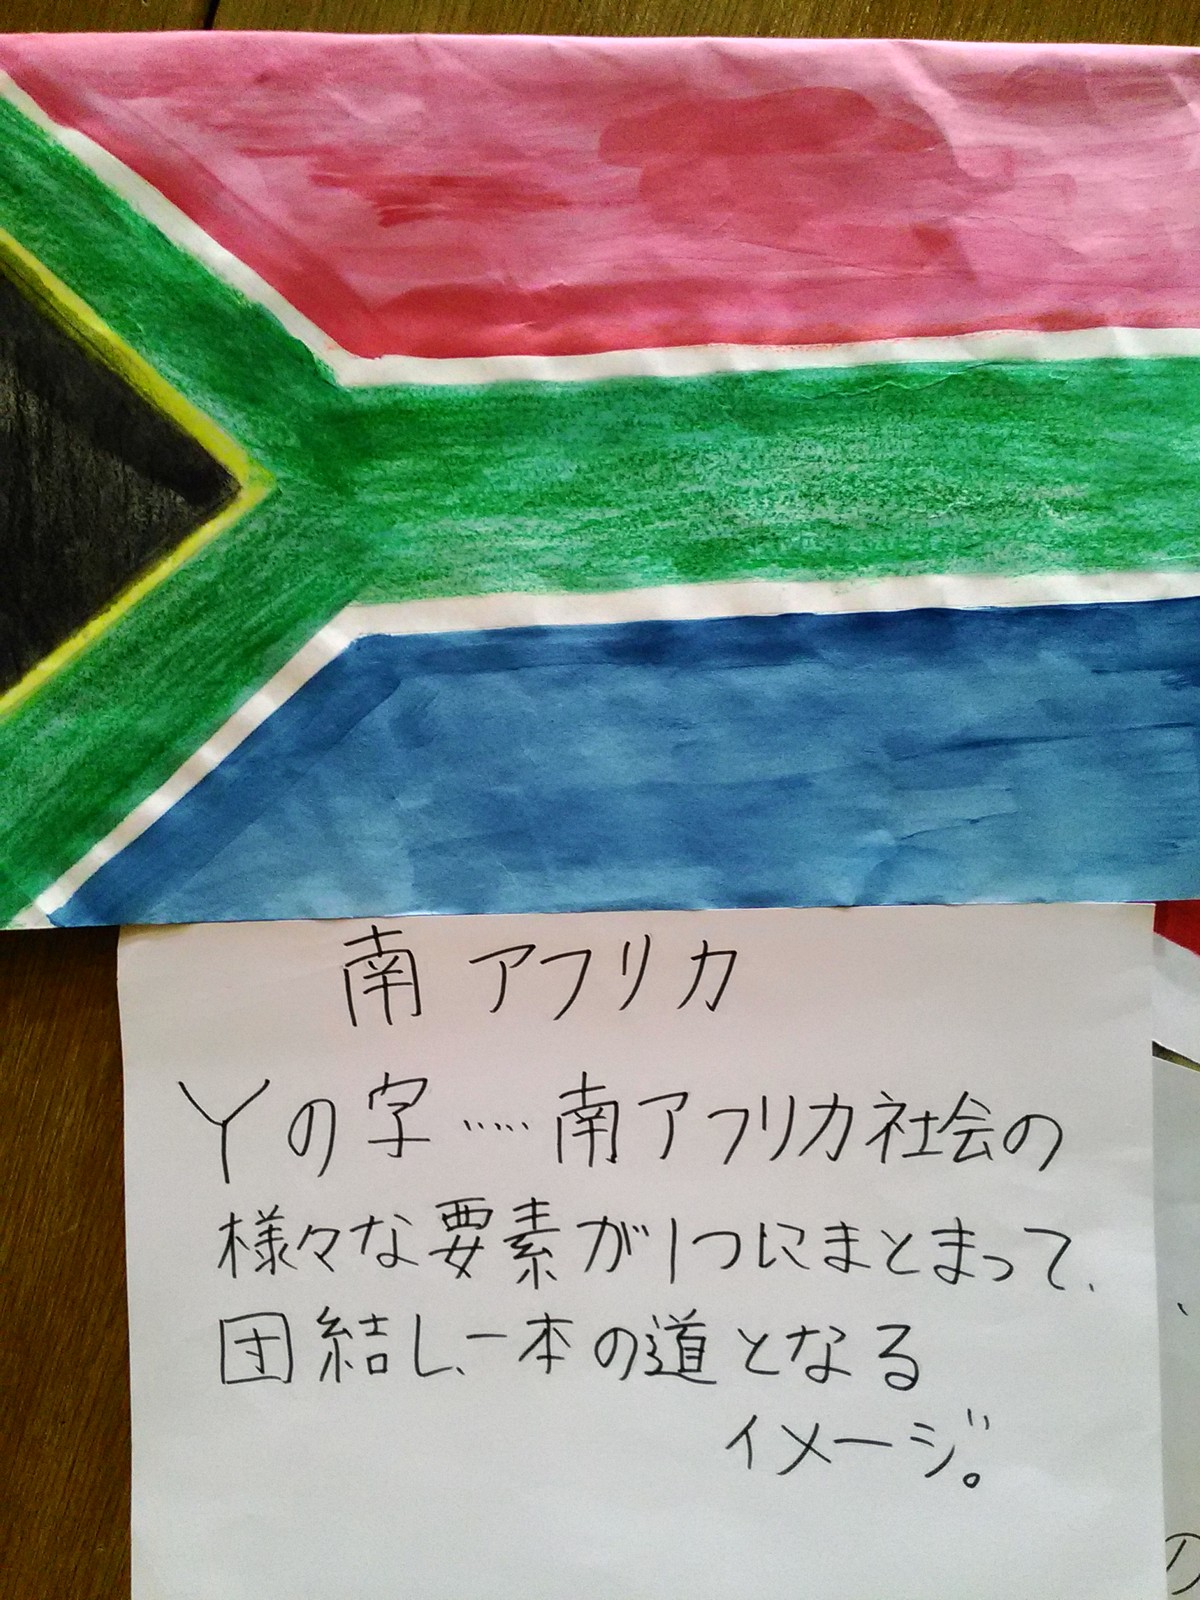 南アフリカ
Yの字……南アフリカ社会の
様々な要素が1つにまとまって、
団結し、一本の道となる
イメージ。
の